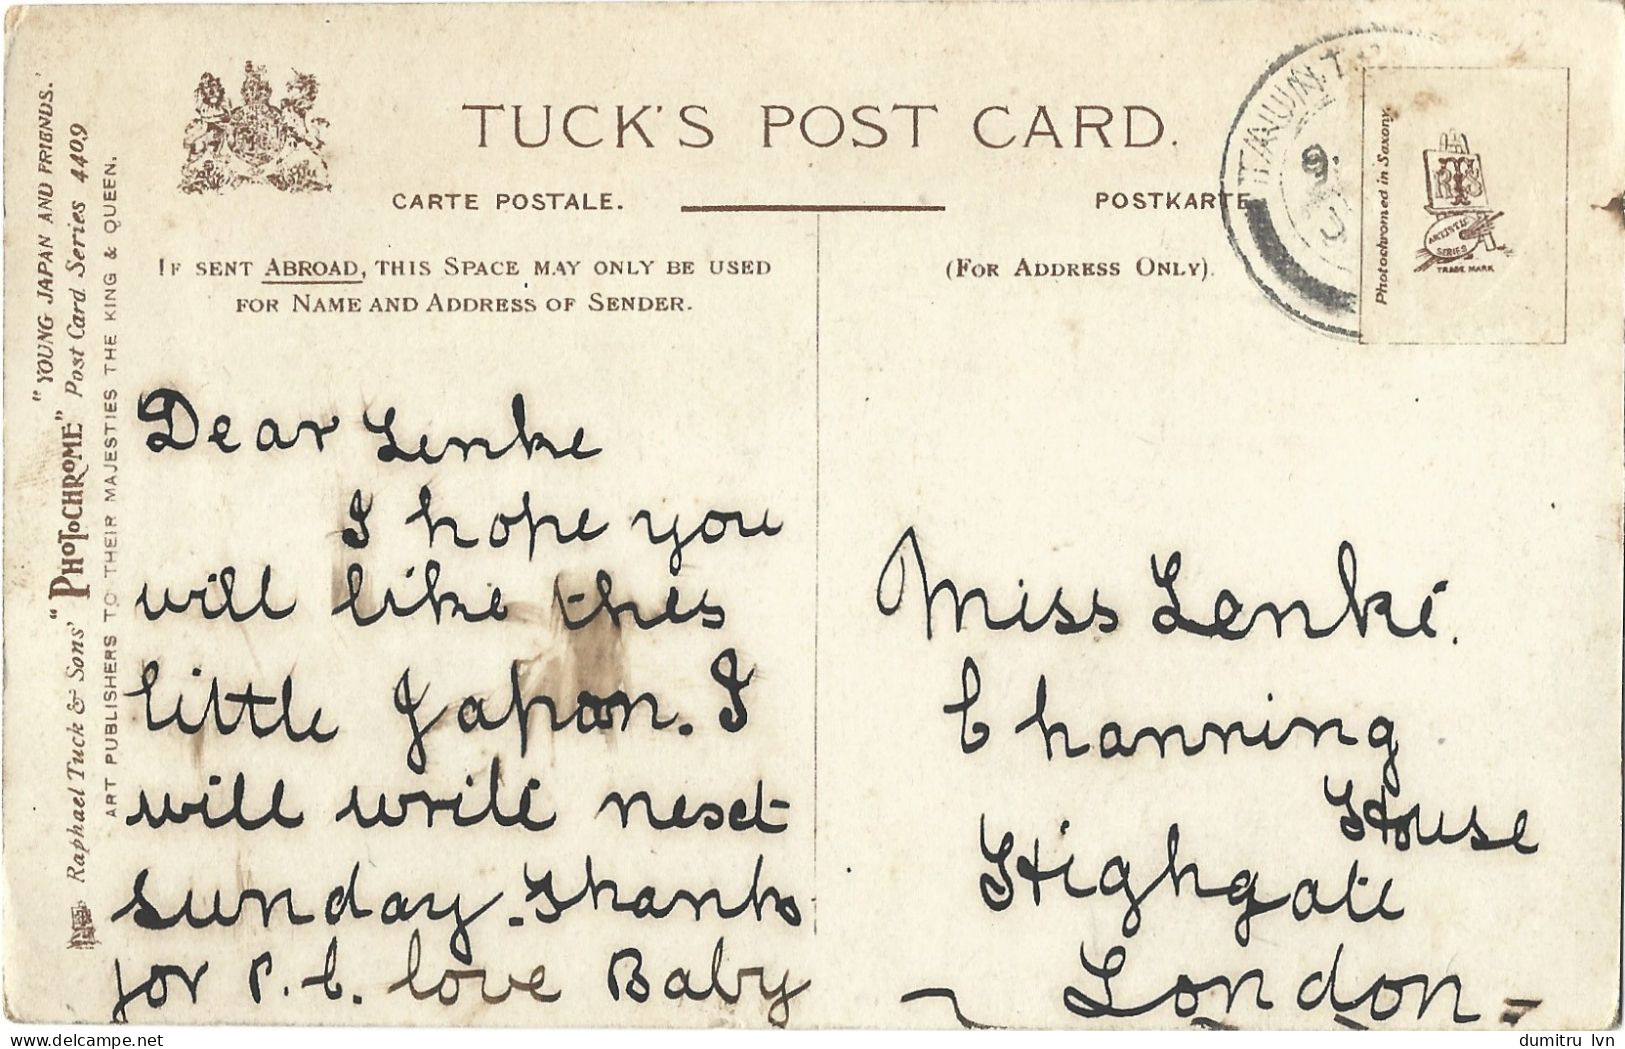 TUCK'S POST CARD.
CARTE POSTALE.
POSTKARTE
IF SENT ABROAD, THIS SPACE MAY ONLY BE USED
FOR NAME AND ADDRESS OF SENDER.
(FOR ADDRESS ONLY).
"YOUNG JAPAN AND FRIENDS."
Raphael Tuck & Sons' "PHOTOCHROME" Post Card Series 4409
ART PUBLISHERS TO THEIR MAJESTIES THE KING & QUEEN.
TAUNT
9
Photochromed in Saxony.
RTS
ARTISTIC
SERIES
TRADE MARK
Dear Lenke
I hope you
will like thes
little Japan. I
will write nesct
sunday. Thanks
for P.C. love Baby
Miss Lenke.
Channing
House
Highgate
London
dumitru lvn